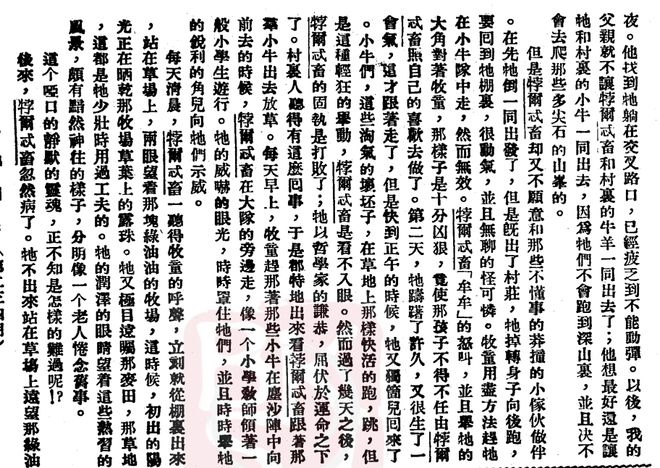 夜。他找到牠躺在交叉路口，已經疲乏到不能動彈。以後，我的
父親就不讓犉爾忒畜和村裏的牛羊一同出去了；他想最好還是讓
牠和村裏的小牛一同出去，因爲牠們不會跑到深山裏，並且決不
會去爬那些多尖石的山峯的。
但是犉爾忒畜却又不願意和那些不懂事的莽撞的小傢伙做伴
。在先牠倒一同出發了，但是旣出了村莊，牠掉轉身子向後跑，
要回到牠棚裏，很動氣，並且無聊的怪可憐。牧童用盡方法趕牠
在小牛隊中走，然而無效。犉爾忒畜「牟牟」的怒叫，並且舉牠的
大角對著牧童，那樣子是十分凶狠，竟使那孩子不得不任由犉爾
忒畜照自己的喜歡去做了。第二天，牠躊躇了許久，又很生了一
會氣，這才跟著走了，但是快到正午的時候，牠又獨箇兒回來了
。小牛們，這些淘氣的壞坯子，在草地上那樣快活的跑，跳，但
是這種輕狂的舉動，犉爾忒畜是看不入眼。然而過了幾天之後，
犉爾忒畜的固執是打敗了；牠以哲學家的謙恭，屈伏於運命之下
了。村裏人聽得有這麼囘事，于是都特地出來看犉爾忒畜跟著那
羣小牛出去放草。每天早上，牧童趕那著那些小牛在塵沙陣中向
前去的時候，犉爾忒畜在大隊的旁邊走，像一個小學敎師領著一
般小學生遊行。牠的威嚇的眼光，時時罩住牠們，並且時時舉牠
的銳利的角兒向牠們示威。
每天清晨，犉爾忒畜一聽得牧童的呼聲，立刻就從棚裏出來
，站在草場上，兩眼望着那塊綠油油的牧場，這時候，初出的陽
光正在晒乾那牧場草葉上的露珠。牠又極目遠矚那麥田，那草地
，這都是牠少壯時用過工夫的。牠的潤澤的眼睛望着這些熟習的
風景，頗有黯然神往的樣子，分明像一個老人惓念舊事。
這個啞口的靜默的靈魂，正不知是怎樣的難過呢！？
後來，犉爾忒畜忽然病了。牠不出來站在草塲上遠望那綠油